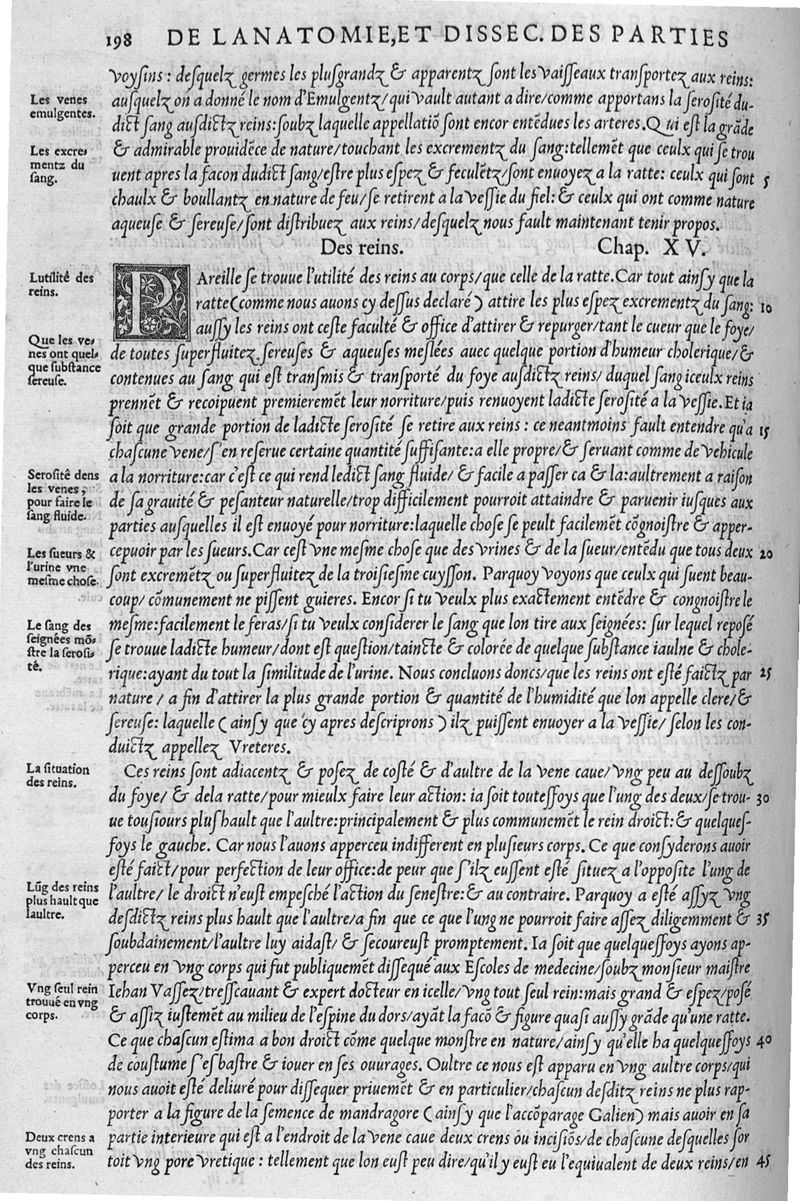 198 DE LANATOMIE, ET DISSEC. DES PARTIES
voysins : desquelz germes les plusgrandz & apparentz sont les vaisseaux transportez aux reins:
Les venes
emulgentes.
ausquelz on a donné le nom d'Emulgentz/qui vault autant a dire/comme apportans la serosité du-
dict sang ausdictz reins:soubz laquelle appellatiō sont encor entēdues les arteres.Qui est la grāde
Les excre-
mentz du
sang.
& admirable prouidēce de nature/touchant les excrementz du sang:tellemēt que ceulx qui se trou
uent apres la facon dudict sang/estre plus espez & feculētz/sont enuoyez a la ratte: ceulx qui sont 5
chaulx & boullantz en nature de feu/se retirent a la vessie du fiel: & ceulx qui ont comme nature
aqueuse & sereuse/sont distribuez aux reins/desquelz nous fault maintenant tenir propos.
Des reins. Chap. XV.
Lutilité des
reins.
PAreille se trouue l'utilité des reins au corps/que celle de la ratte.Car tout ainsy que la
ratte(comme nous auons cy dessus declaré) attire les plus espez excrementz du sang: 10
aussy les reins ont ceste faculté & office d'attirer & repurger/tant le cueur que le foye/
Que les ve-
nes ont quel-
que substance
sereuse.
de toutes superfluitez sereuses & aqueuses meslées auec quelque portion d'humeur cholerique/&
contenues au sang qui est transmis & transporté du foye ausdictz reins/ duquel sang iceulx reins
prennēt & recoipuent premieremēt leur norriture/puis renuoyent ladicte serosité a la vessie.Et ia
soit que grande portion de ladicte serosité se retire aux reins : ce neantmoins fault entendre qu'a 15
chascune vene/s'en reserue certaine quantité suffisante:a elle propre/& seruant comme de vehicule
Serosité dens
les venes,
pour faire le
sang fluide.
a la norriture:car c'est ce qui rend ledict sang fluide/& facile a passer ca & la:aultrement a raison
de sa grauité & pesanteur naturelle/trop difficilement pourroit attaindre & paruenir iusques aux
parties ausquelles il est enuoyé pour norriture:laquelle chose se peult facilemēt cōgnoistre & apper-
Les sueurs &
l'urine vne
mesme chose.
cepuoir par les sueurs.Car cest vne mesme chose que des vrines & de la sueur/entēdu que tous deux 20
sont excremētz ou superfluitez de la troisiesme cuysson. Parquoy voyons que ceulx qui suent beau-
coup/ cōmunement ne pissent guieres. Encor si tu veulx plus exactement entēdre & congnoistre le
Le sang des
seignées mō-
stre la serosi-
té.
mesme:facilement le feras/si tu veulx considerer le sang que lon tire aux seignées: sur lequel reposé
se trouue ladicte humeur/dont est question/taincte & colorée de quelque substance iaulne & chole-
rique:ayant du tout la similitude de l'urine. Nous concluons doncs/que les reins ont esté faictz par 25
nature / a fin d'attirer la plus grande portion & quantité de l'humidité que lon appelle clere/ &
sereuse: laquelle ( ainsy que cy apres descriprons ) ilz puissent enuoyer a la vessie/ selon les con-
duictz appellez Vreteres.
La situation
des reins.
Ces reins sont adiacentz & posez de costé & d'aultre de la vene caue/vng peu au dessoubz
du foye/ & dela ratte/pour mieulx faire leur action: ia soit toutessoys que l'ung des deux/se trou- 30
ue tousiours plus hault que l'aultre:principalement & plus communemēt le rein droict:& quelques-
foys le gauche. Car nous l'auons apperceu indifferent en plusieurs corps. Ce que consyderons auoir
esté faict/pour perfection de leur office:de peur que s'ilz eussent esté situez a l'opposite l'ung de
Lūg des reins
plus hault que
laultre.
l'aultre/ le droict n'eust empesché l'action du senestre:& au contraire. Parquoy a esté assyz vng
desdictz reins plus hault que l'aultre/a fin que ce que l'ung ne pourroit faire assez diligemment & 35
soubdainement/l'aultre luy aidast/ & secoureust promptement. Ia soit que quelquessoys ayons ap-
perceu en vng corps qui fut publiquemēt dissequé aux Escoles de medecine/soubz monsieur maistre
Vng seul rein
trouué en vng
corps.
Iehan Vassez/tresscauant & expert docteur en icelle/vng tout seul rein:mais grand & espez/posé
& assiz iustemēt au milieu de l'espine du dors/ayāt la facō & figure quasi aussy grāde qu'une ratte.
Ce que chascun estima a bon droict cōme quelque monstre en nature/ainsy qu'elle ha quelquessoys 40
de coustume s'esbastre & iouer en ses ouurages. Oultre ce nous est apparu en vng aultre corps/qui
nous auoit esté deliuré pour dissequer priuemēt & en particulier/chascun desditz reins ne plus rap-
porter a la figure de la semence de mandragore (ainsy que l'accōparage Galien) mais auoir en sa
Deux crens a
vng chascun
des reins.
partie interieure qui est a l'endroit de la vene caue deux crens ou incisiōs/de chascune desquelles sor
toit vng pore vretique : tellement que lon eust peu dire/qu'il y eust eu l'equiualent de deux reins/en 45